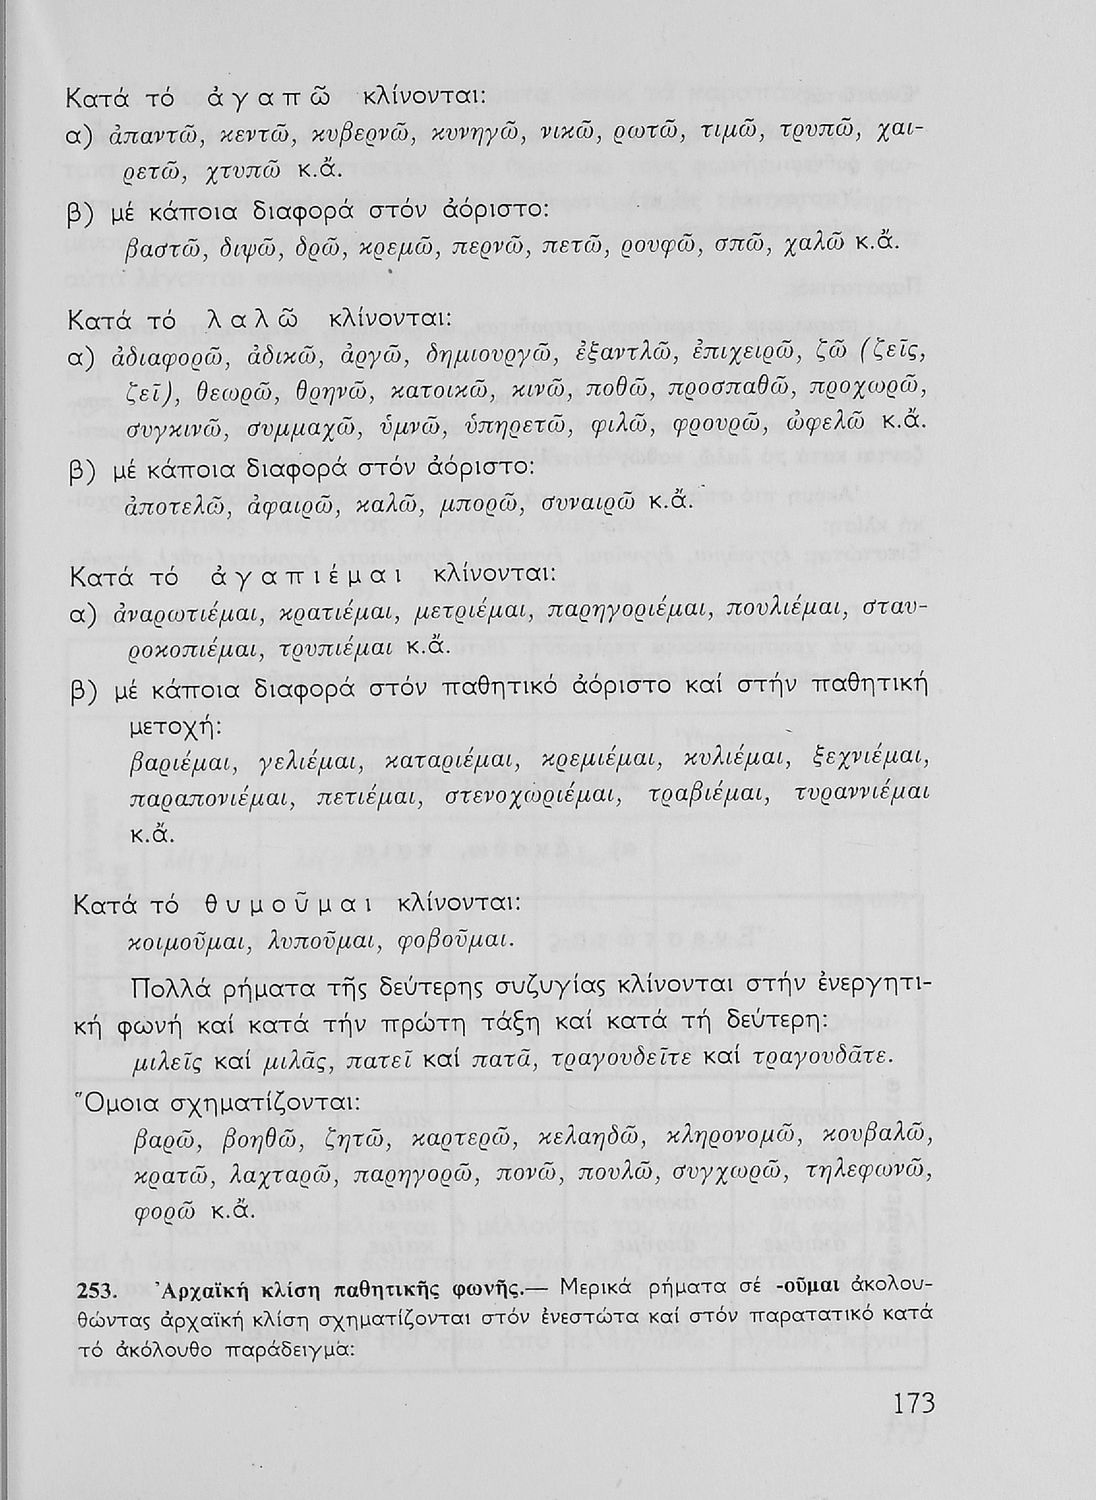 Κατά τό ἀγαπῶ κλίνονται:
α) ἀπαντῶ, κεντῶ, κυβερνῶ, κυνηγῶ, νικῶ, ρωτῶ, τιμῶ, τρυπῶ, χαι-
ρετῶ, χτυπῶ κ.ἄ.
β) μέ κάποια διαφορά στόν ἀόριστο:
βαστῶ, διψῶ, δρῶ, κρεμῶ, περνῶ, πετῶ, ρουφῶ, σπῶ, χαλῶ κ.ἄ.
Κατά τό λαλῶ κλίνονται:
α) ἀδιαφορῶ, ἀδικῶ, ἀργῶ, δημιουργῶ, ἐξαντλῶ, ἐπιχειρῶ, ζῶ (ζεῖς,
ζεῖ), θεωρῶ, θρηνῶ, κατοικῶ, κινῶ, ποθῶ, προσπαθῶ, προχωρῶ,
συγκινῶ, συμμαχῶ, ὑμνῶ, ὑπηρετῶ, φιλῶ, φρουρῶ, ὠφελῶ κ.ἄ.
β) μέ κάποια διαφορά στόν ἀόριστο:
ἀποτελῶ, ἀφαιρῶ, καλῶ, μπορῶ, συναιρῶ κ.ἄ.
Κατά τό ἀγαπιέμαι κλίνονται:
α) ἀναρωτιέμαι, κρατιέμαι, μετριέμαι, παρηγοριέμαι, πουλιέμαι, σταυ-
ροκοπιέμαι, τρυπιέμαι κ.ἄ.
β) μέ κάποια διαφορά στόν παθητικό ἀόριστο καί στήν παθητική
μετοχή:
βαριέμαι, γελιέμαι, καταριέμαι, κρεμιέμαι, κυλιέμαι, ξεχνιέμαι,
παραπονιέμαι, πετιέμαι, στενοχωριέμαι, τραβιέμαι, τυραννιέμαι
κ.ἄ.
Κατά τό θυμοῦμαι κλίνονται:
κοιμοῦμαι, λυποῦμαι, φοβοῦμαι.
Πολλά ρήματα τῆς δεύτερης συζυγίας κλίνονται στήν ἐνεργητι-
κή φωνή καί κατά τήν πρώτη τάξη καί κατά τή δεύτερη:
μιλεῖς καί μιλᾶς, πατεῖ καί πατᾶ, τραγουδεῖτε καί τραγουδᾶτε.
Ὅμοια σχηματίζονται:
βαρῶ, βοηθῶ, ζητῶ, καρτερῶ, κελαηδῶ, κληρονομῶ, κουβαλῶ,
κρατῶ, λαχταρῶ, παρηγορῶ, πονῶ, πουλῶ, συγχωρῶ, τηλεφωνῶ,
φορῶ κ.ἄ.
253. Ἀρχαϊκή κλίση παθητικῆς φωνῆς.— Μερικά ρήματα σέ -οῦμαι ἀκολου-
θώντας ἀρχαϊκή κλίση σχηματίζονται στόν ἐνεστώτα καί στόν παρατατικό κατά
τό ἀκόλουθο παράδειγμα:
173